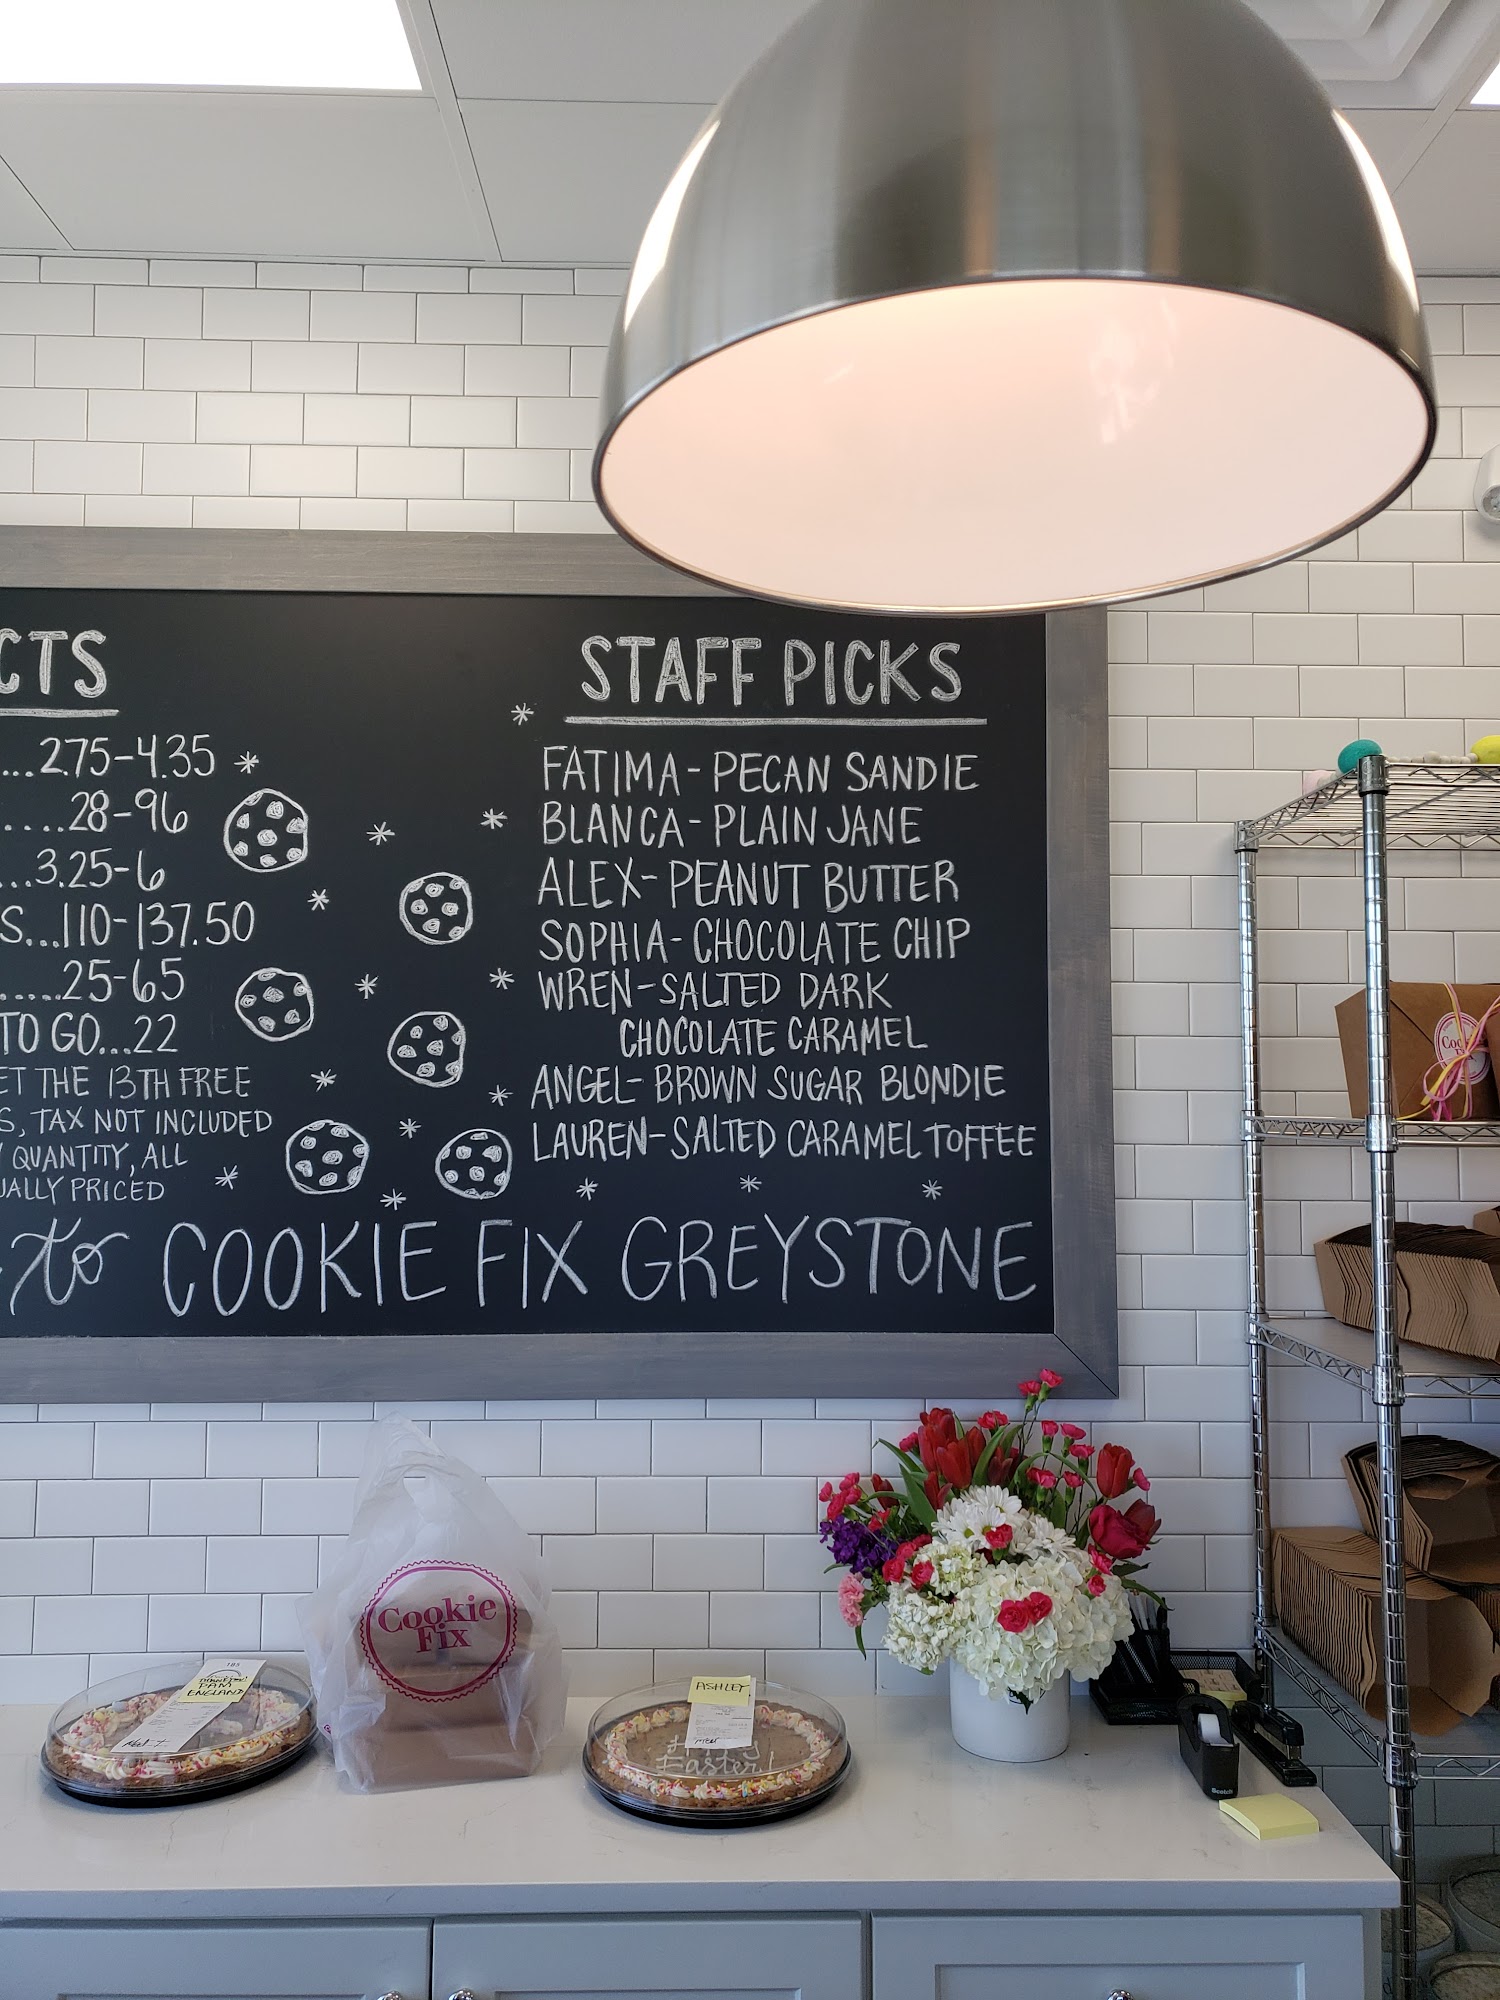 CTS
...2.75-4.35
....28-96
...3.25-6
S...110-137.50
.....25-65
TO GO...22
ET THE 13TH FREE
S, TAX NOT INCLUDED
QUANTITY, ALL
UALLY PRICED
STAFF PICKS
FATIMA- PECAN SANDIE
BLANCA- PLAIN JANE
ALEX- PEANUT BUTTER
SOPHIA- CHOCOLATE CHIP
WREN-SALTED DARK
CHOCOLATE CARAMEL
ANGEL- BROWN SUGAR BLONDIE
LAUREN-SALTED CARAMEL TOFFEE
to COOKIE FIX GREYSTONE
Cookie
Fix
185
PAM
ENGLAND
Cookie
Fix
ASHLEY
Easter!
Scotch